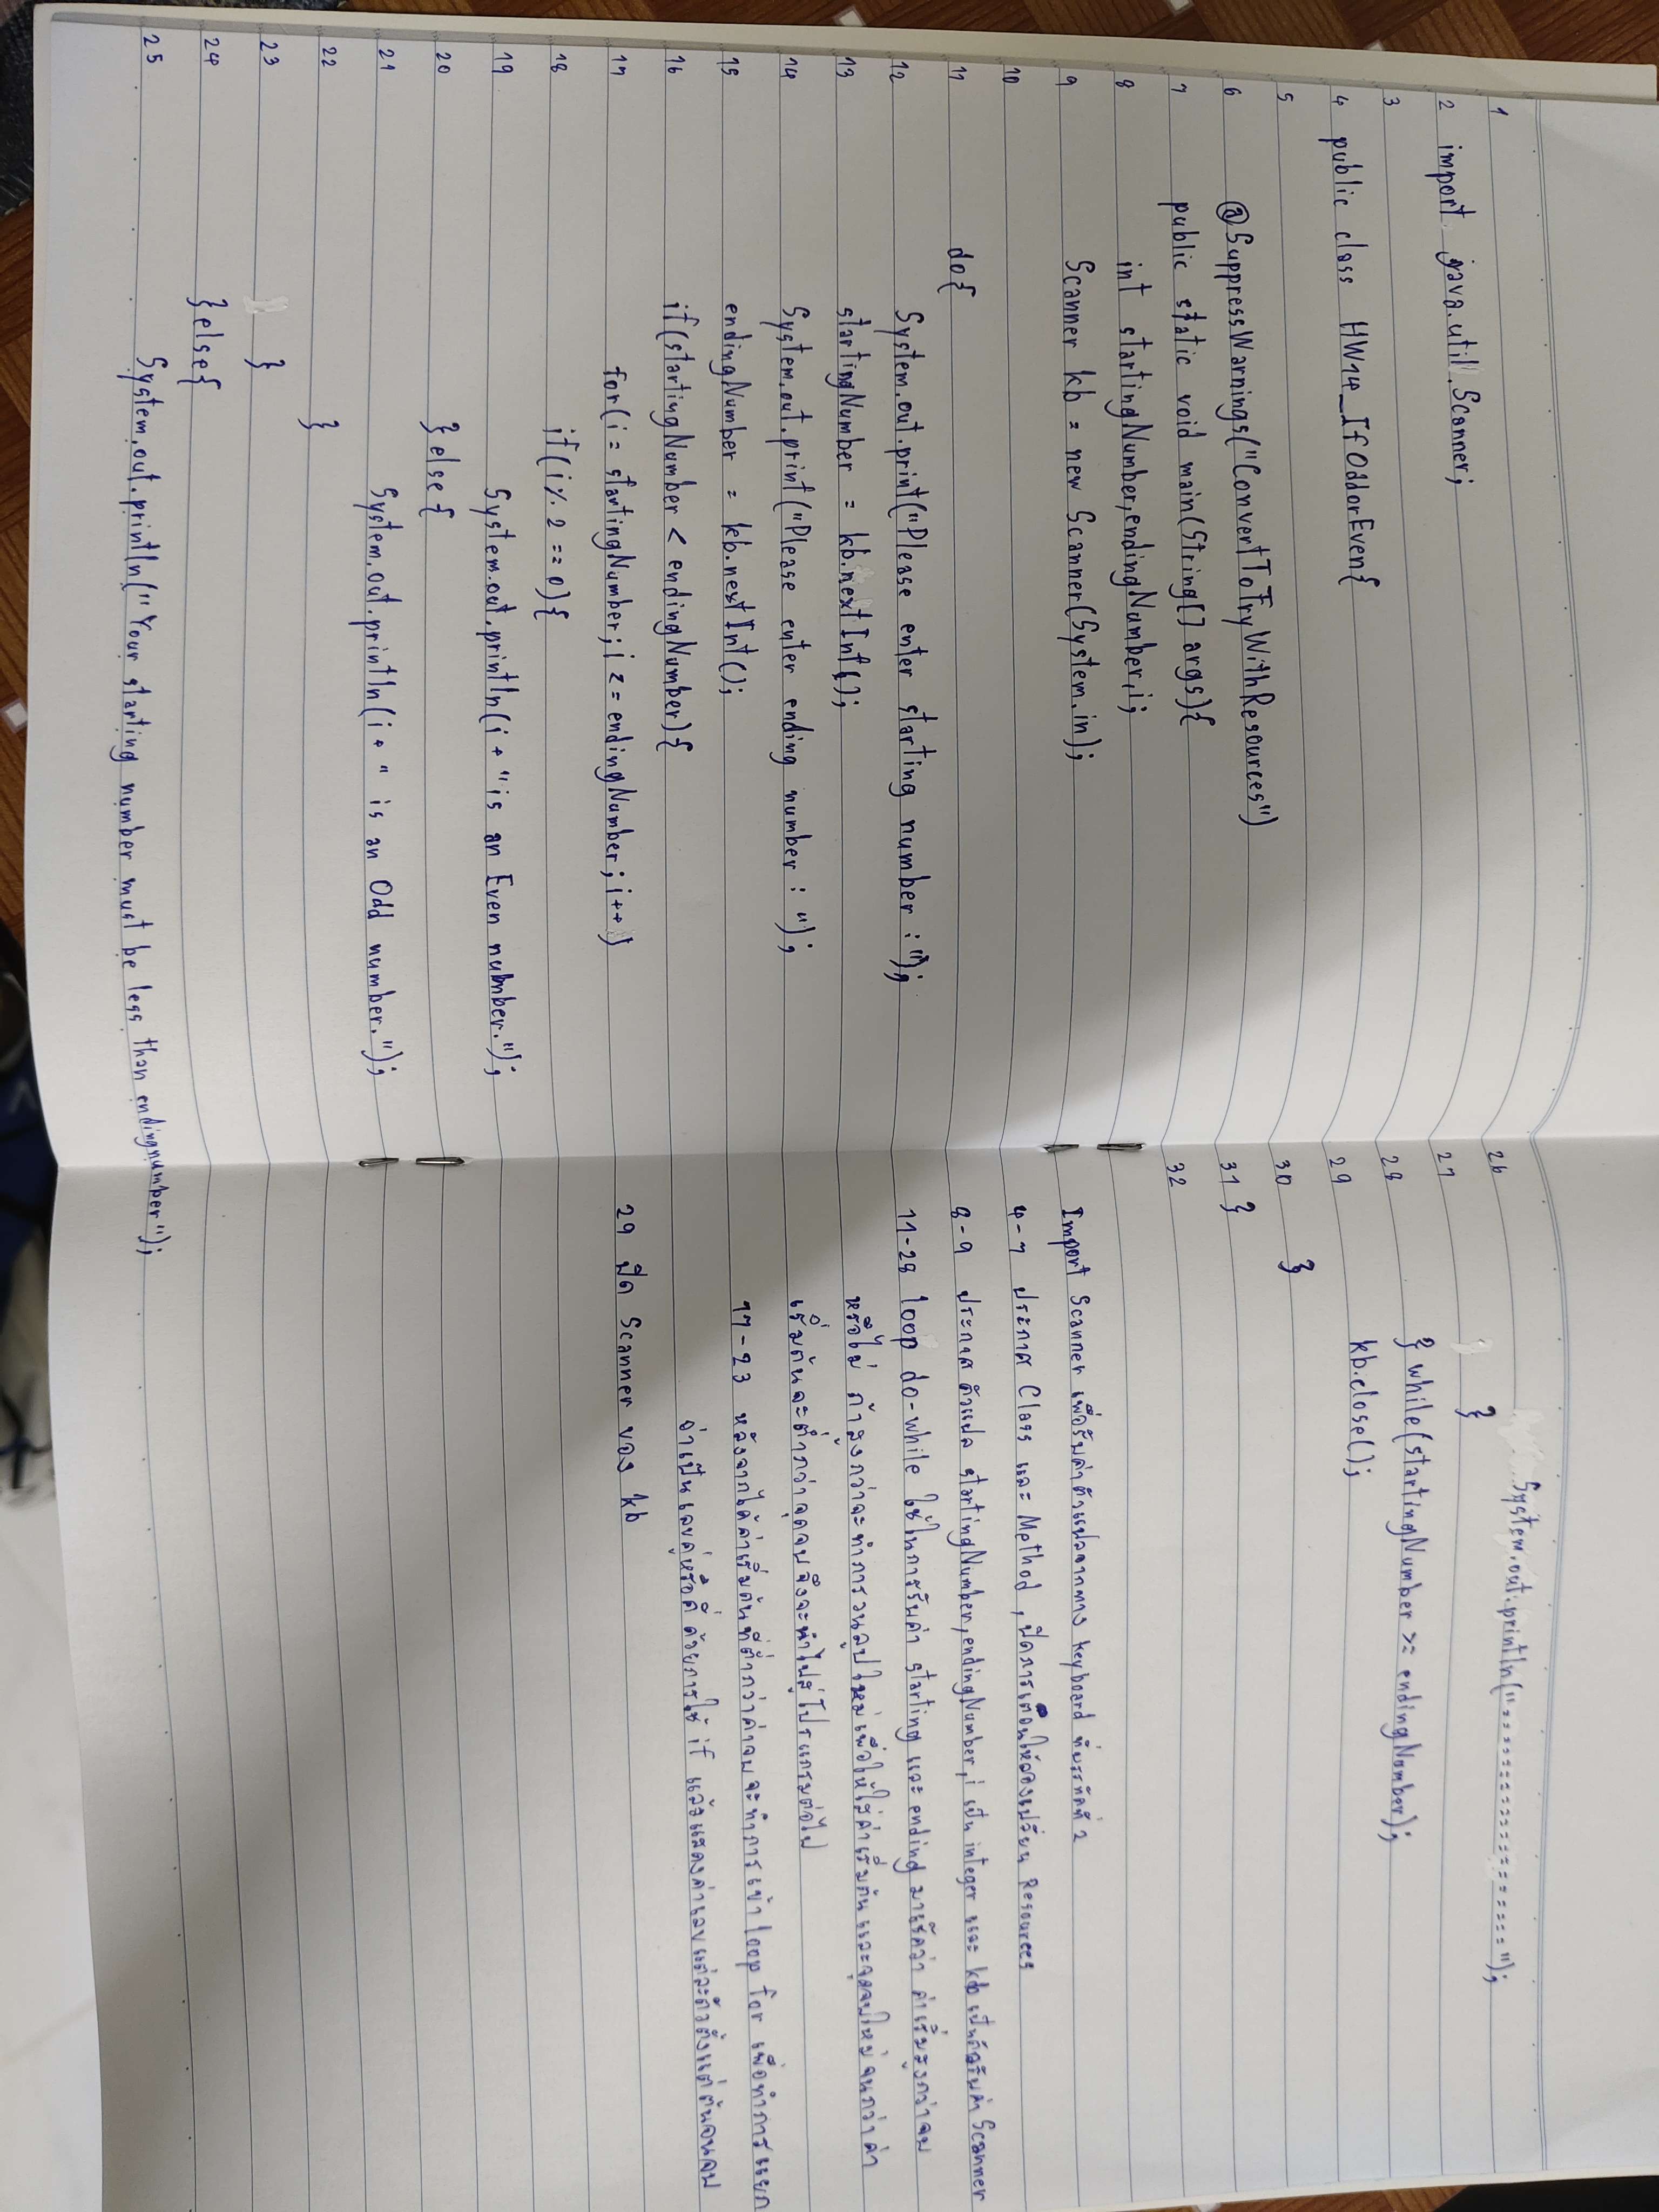 1
2 import java.util.Scanner;
3
4 public class HW14_IfOddorEven{
5
6 @SuppressWarnings("ConvertToTryWithResources")
7 public static void main(String[] args){
8 int startingNumber,endingNumber,i;
9 Scanner kb = new Scanner(System.in);
10
11 do{
12 System.out.print("Please enter starting number :");
13 startingNumber = kb.nextInt();
14 System.out.print("Please enter ending number : ");
15 endingNumber = kb.nextInt();
16 if(startingNumber < endingNumber){
17 for(i = startingNumber; i <= endingNumber; i++)
18 if(i % 2 == 0){
19 System.out.println(i + "is an Even number.");
20 }else{
21 System.out.println(i + " is an Odd number.");
22 }
23 }
24 }else{
25 System.out.println("Your starting number must be less than endingnumber");
26 System.out.println("====================");
27 }
28 } while(startingNumber >= endingNumber);
29 kb.close();
30 }
31 }
32
Import Scanner เพื่อรับค่าตัวแปลจากทาง keyboard ที่บรรทัดที่ 2
4-7 ประกาศ Class และ Method , ปิดการเตือนให้ลองเปรียน Resources
8-9 ประกาศ ตัวแปล startingNumber,endingNumber,i เป็น integer และ kb เป็นตัวรับค่า Scanner
11-28 loop do-while ใช้ในการรับค่า starting และ ending มาเช็คว่า ค่าเริ่มสูงกว่าจบ
หรือไม่ ถ้าสูงกว่าจะทำการวนลูปใหม่เพื่อให้ใส่ค่าเริ่มต้นและจุดจบใหม่จนกว่าค่า
เริ่มต้นจะต่ำกว่าจุดจบจึงจะนำไปสู่โปรแกรมต่อไป
17-23 หลังจากได้ค่าเริ่มต้นที่ต่ำกว่าค่าจบจะทำการเข้า loop for เพื่อทำการแยก
ว่าเป็นเลขคู่หรือคี่ ด้วยการใช้ if แล้วแสดงค่าเลขแต่ละตัวตั้งแต่ต้นจนจบ
29 ปิด Scanner ของ kb